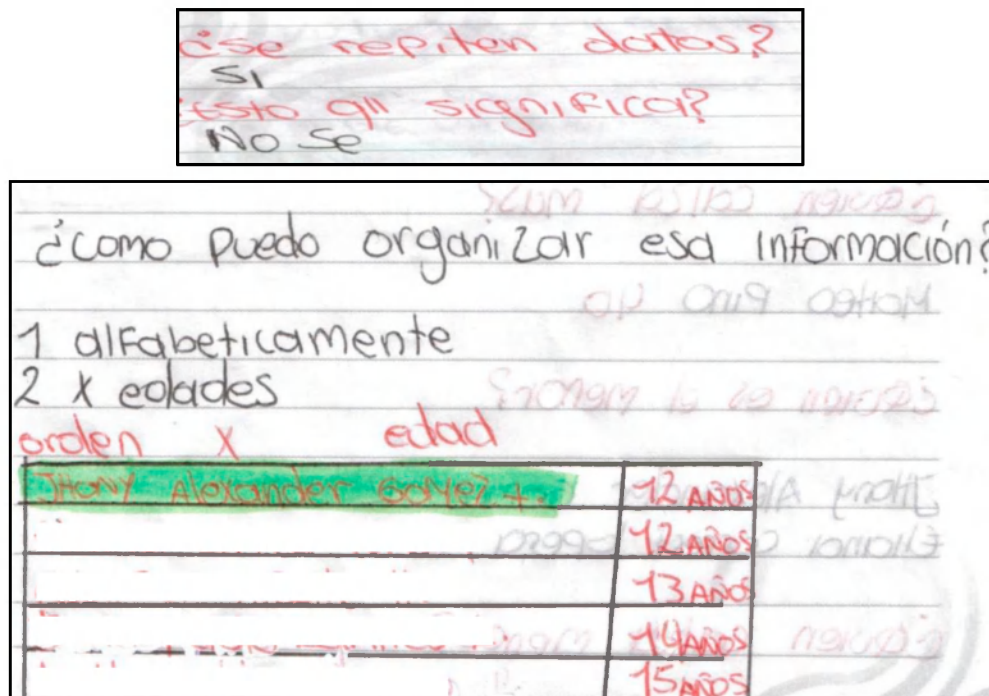 ¿se repiten datos?
SI
¿Esto qu significa?
NO Se
¿como puedo organizar esa información?
1 alfabeticamente
2 x edades
orden x edad
JHONY Alexander Gomez + 12 AÑOS
12 AÑOS
13 AÑOS
14 AÑOS
15 AÑOS